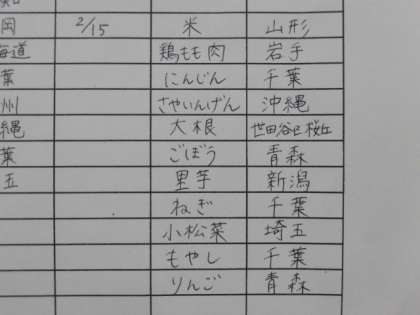 岡 2/15 米 山形
海道 鶏もも肉 岩手
葉 にんじん 千葉
州 さやいんげん 沖縄
縄 大根 世田谷区桜丘
葉 ごぼう 青森
玉 里芋 新潟
ねぎ 千葉
小松菜 埼玉
もやし 千葉
りんご 青森